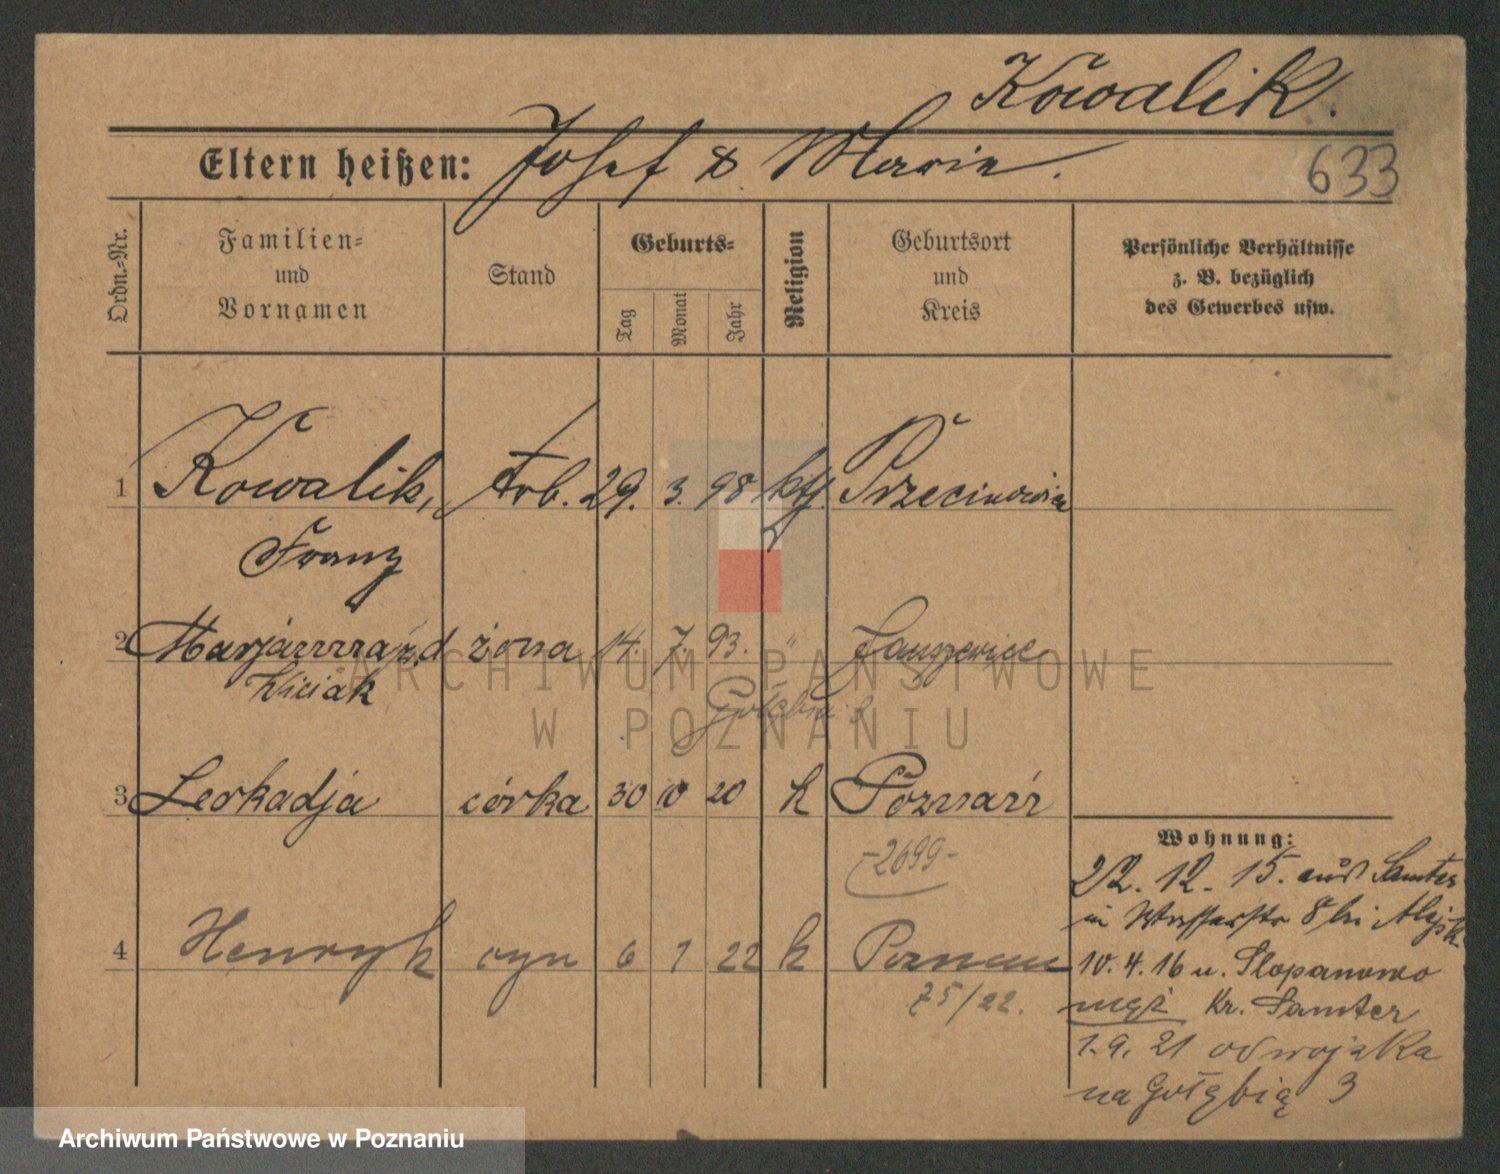 Kowalik.
Eltern heißen: Josef & Marie.
633
Ordn.-Nr.
Familien-
und
Vornamen
Stand
Geburts-
Tag
Monat
Jahr
Religion
Geburtsort
und
Kreis
Persönliche Verhältnisse
z. B. bezüglich
des Gewerbes usw.
1 Kowalik, Arb. 29. 3. 98 kth.
Franz
2 Marjanna zd żona 14. 7. 93. "
Kiciak
Gołębia
3 Leokadja córka 30 10 20 k Poznań
-2699-
4 Henryk syn 6 1 22 k Poznań
75/22.
Wohnung:
22. 12. 15. aus Samter
in Wasserstr 8 bei
10. 4. 16 n. Slopanowo
mąż Kr. Samter
1. 9. 21 od wojska
na Gołębią 3
ARCHIWUM PAŃSTWOWE
W POZNANIU
Archiwum Państwowe w Poznaniu